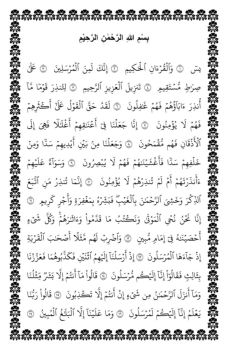 بِسْمِ اللَّهِ الرَّحْمَٰنِ الرَّحِيْمِ
يسٓ ۝ وَالْقُرْءَانِ الْحَكِيمِ ۝ إِنَّكَ لَمِنَ الْمُرْسَلِينَ ۝ عَلَىٰ
صِرَاطٍ مُّسْتَقِيمٍ ۝ تَنزِيلَ الْعَزِيزِ الرَّحِيمِ ۝ لِتُنذِرَ قَوْمًا مَّا
أُنذِرَ ءَابَآؤُهُمْ فَهُمْ غَٰفِلُونَ ۝ لَقَدْ حَقَّ الْقَوْلُ عَلَىٰٓ أَكْثَرِهِمْ
فَهُمْ لَا يُؤْمِنُونَ ۝ إِنَّا جَعَلْنَا فِىٓ أَعْنَٰقِهِمْ أَغْلَٰلًا فَهِىَ إِلَى
الْأَذْقَانِ فَهُم مُّقْمَحُونَ ۝ وَجَعَلْنَا مِنۢ بَيْنِ أَيْدِيهِمْ سَدًّا وَمِنْ
خَلْفِهِمْ سَدًّا فَأَغْشَيْنَٰهُمْ فَهُمْ لَا يُبْصِرُونَ ۝ وَسَوَآءٌ عَلَيْهِمْ
ءَأَنذَرْتَهُمْ أَمْ لَمْ تُنذِرْهُمْ لَا يُؤْمِنُونَ ۝ إِنَّمَا تُنذِرُ مَنِ اتَّبَعَ
الذِّكْرَ وَخَشِىَ الرَّحْمَٰنَ بِالْغَيْبِ فَبَشِّرْهُ بِمَغْفِرَةٍ وَأَجْرٍ كَرِيمٍ ۝
إِنَّا نَحْنُ نُحْىِ الْمَوْتَىٰ وَنَكْتُبُ مَا قَدَّمُوا۟ وَءَاثَٰرَهُمْ وَكُلَّ شَىْءٍ
أَحْصَيْنَٰهُ فِىٓ إِمَامٍ مُّبِينٍ ۝ وَاضْرِبْ لَهُم مَّثَلًا أَصْحَٰبَ الْقَرْيَةِ
إِذْ جَآءَهَا الْمُرْسَلُونَ ۝ إِذْ أَرْسَلْنَآ إِلَيْهِمُ اثْنَيْنِ فَكَذَّبُوهُمَا فَعَزَّزْنَا
بِثَالِثٍ فَقَالُوٓا۟ إِنَّآ إِلَيْكُم مُّرْسَلُونَ ۝ قَالُوا۟ مَآ أَنتُمْ إِلَّا بَشَرٌ مِّثْلُنَا
وَمَآ أَنزَلَ الرَّحْمَٰنُ مِن شَىْءٍ إِنْ أَنتُمْ إِلَّا تَكْذِبُونَ ۝ قَالُوا۟ رَبُّنَا
يَعْلَمُ إِنَّآ إِلَيْكُمْ لَمُرْسَلُونَ ۝ وَمَا عَلَيْنَآ إِلَّا الْبَلَٰغُ الْمُبِينُ ۝